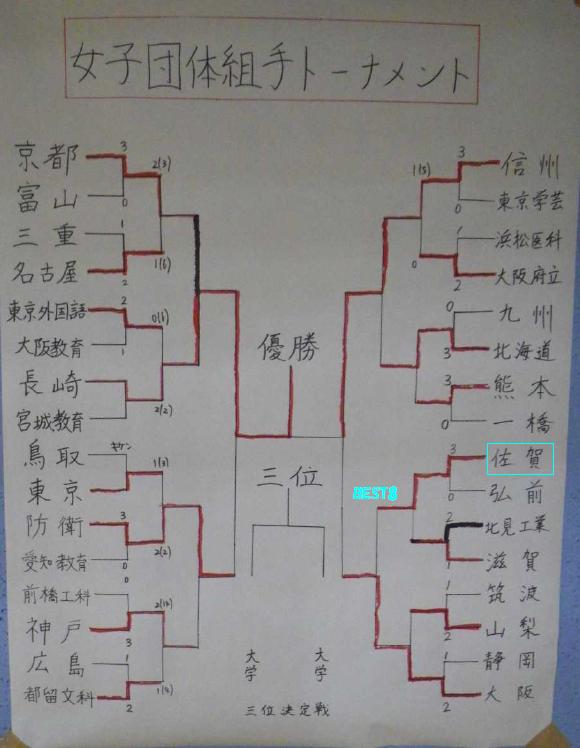 女子団体組手トーナメント
京都
富山
三重
名古屋
東京外国語
大阪教育
長崎
宮城教育
鳥取
東京
防衛
愛知教育
前橋工科
神戸
広島
都留文科
3
0
1
2
2
1
キケン
3
0
0
3
1
2
2(3)
1(6)
0(6)
2(2)
1(3)
2(2)
優勝
三位
大学
大学
三位決定戦
BEST8
1(5)
0
3
0
1
2
0
3
3
0
3
0
2
1
1
2
1
2
信州
東京学芸
浜松医科
大阪府立
九州
北海道
熊本
一橋
佐賀
弘前
北見工業
滋賀
筑波
山梨
静岡
大阪